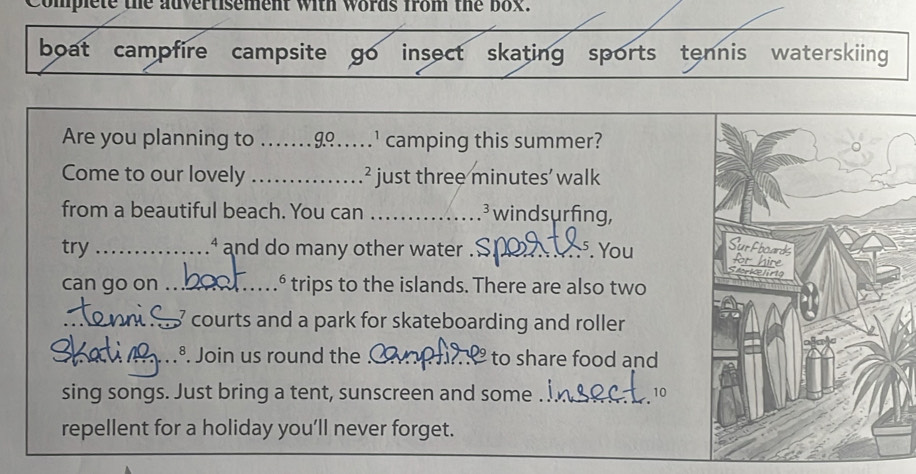 Complete the advertisement with words from the box.
boat campfire campsite go insect skating sports tennis waterskiing
Are you planning to .......go.....¹ camping this summer?
Come to our lovely ...............² just three minutes' walk
from a beautiful beach. You can ...............³ windsurfing,
try ...............⁴ and do many other water sports⁵. You
can go on ...boat.....⁶ trips to the islands. There are also two
...tennis⁷ courts and a park for skateboarding and roller
skating...⁸. Join us round the campfire⁹ to share food and
sing songs. Just bring a tent, sunscreen and some .insect.¹⁰
repellent for a holiday you'll never forget.
Surfboards
for hire
Snorkeling